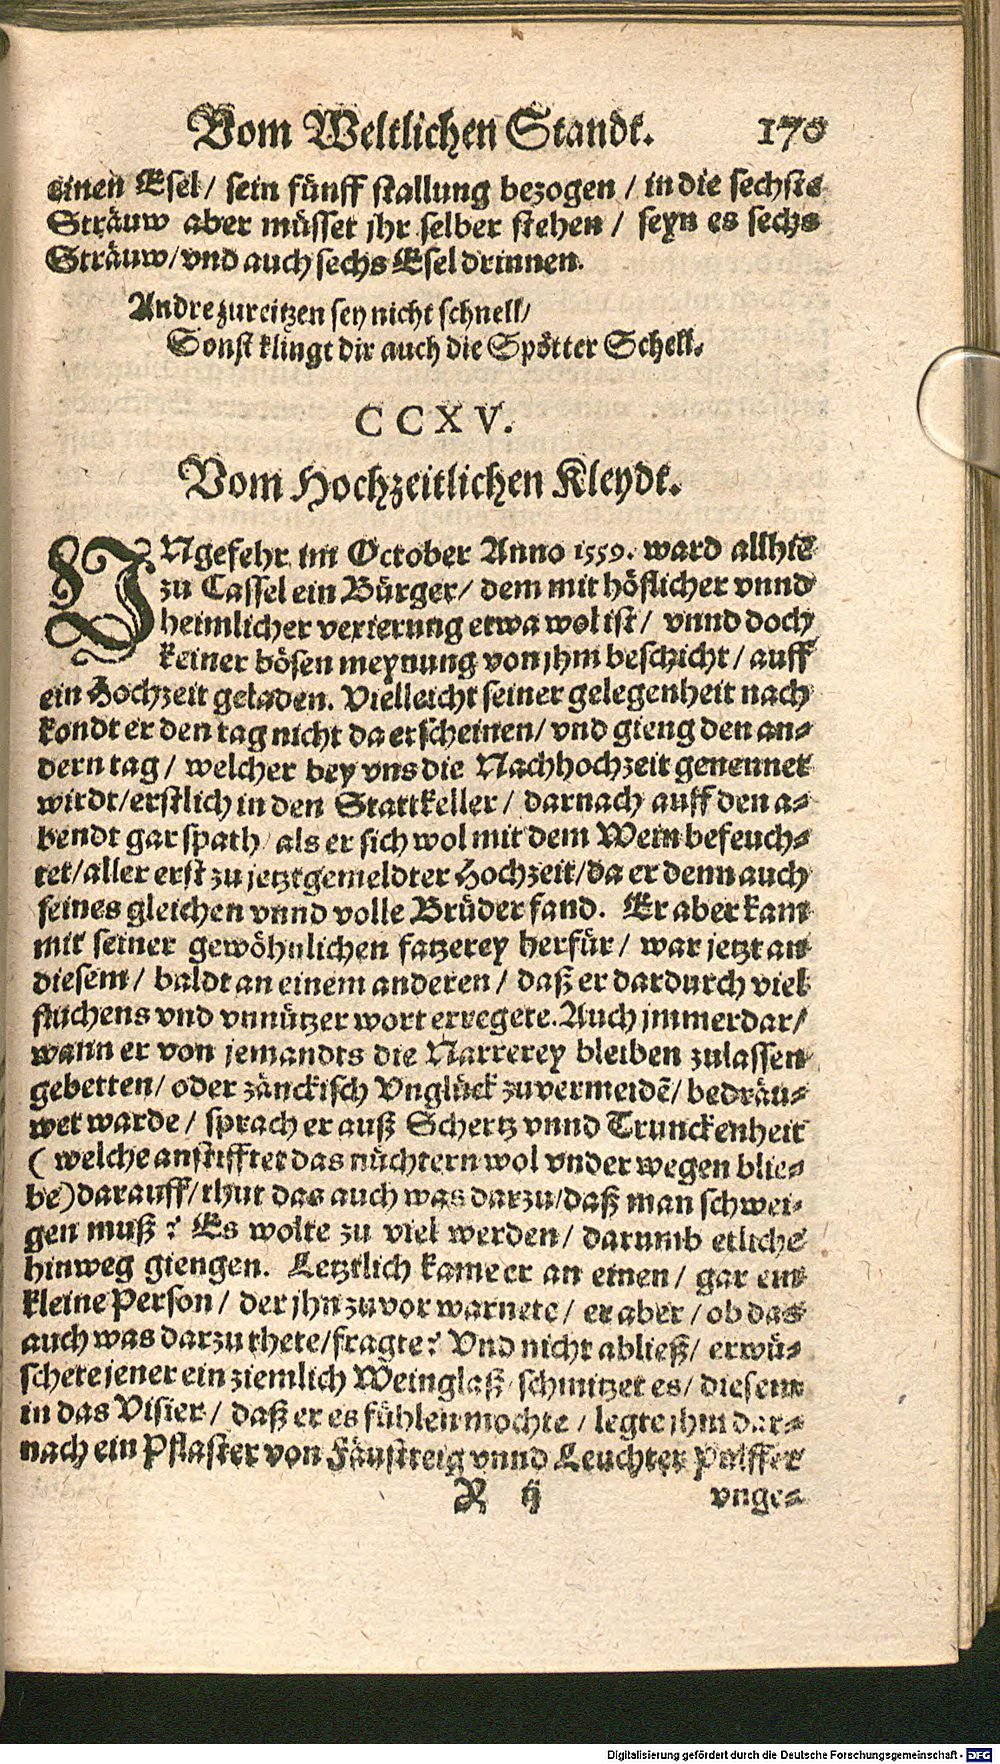 Vom Weltlichen Standt. 170
einen Esel / sein fünff stallung bezogen / in die sechste
Sträuw aber müsset jhr selber stehen / seyn es sechs
Sträuw / vnd auch sechs Esel drinnen.
Andre zureitzen sey nicht schnell /
Sonst klingt dir auch die Spötter Schell.
CCXV.
Vom Hochzeitlichen Kleydt.
VNgefehr im October Anno 1559. ward allhie
zu Cassel ein Bürger / dem mit höflicher vnnd
heimlicher vexierung etwa wol ist / vnnd doch
keiner bösen meynung von jhm beschicht / auff
ein Hochzeit geladen. Vielleicht seiner gelegenheit nach
kondt er den tag nicht da erscheinen / vnd gieng den an-
dern tag / welcher bey vns die Nachhochzeit genennet
wirdt / erstlich in den Stattkeller / darnach auff den a-
bendt gar spath / als er sich wol mit dem Wein befeuch-
tet / aller erst zu jetztgemeldter Hochzeit / da er denn auch
seines gleichen vnnd volle Brüder fand. Er aber kam
mit seiner gewöhnlichen fatzerey herfür / war jetzt an
diesem / baldt an einem anderen / daß er dardurch viel
fluchens vnd vnnützer wort erregete. Auch jmmerdar /
wann er von jemandts die Narrerey bleiben zulassen
gebetten / oder zänckisch Vnglück zuvermeidē / bedräu-
wet warde / sprach er auß Schertz vnnd Trunckenheit
( welche anstifftet das nüchtern wol vnder wegen blie-
be) darauff / thut das auch was darzu / daß man schwei-
gen muß ? Es wolte zu viel werden / darumb etliche
hinweg giengen. Letztlich kame er an einen / gar ein
kleine Person / der jhn zuvor warnete / er aber / ob das
auch was darzu thete / fragte ? Vnd nicht abließ / erwü-
schete jener ein ziemlich Weinglaß / schmitzet es / diesem
in das Visier / daß er es fühlen mochte / legte jhm dar-
nach ein Pflaster von Fäustteig vnnd Leuchter Pulffer
R ij vnge-
Digitalisierung gefördert durch die Deutsche Forschungsgemeinschaft - DFG